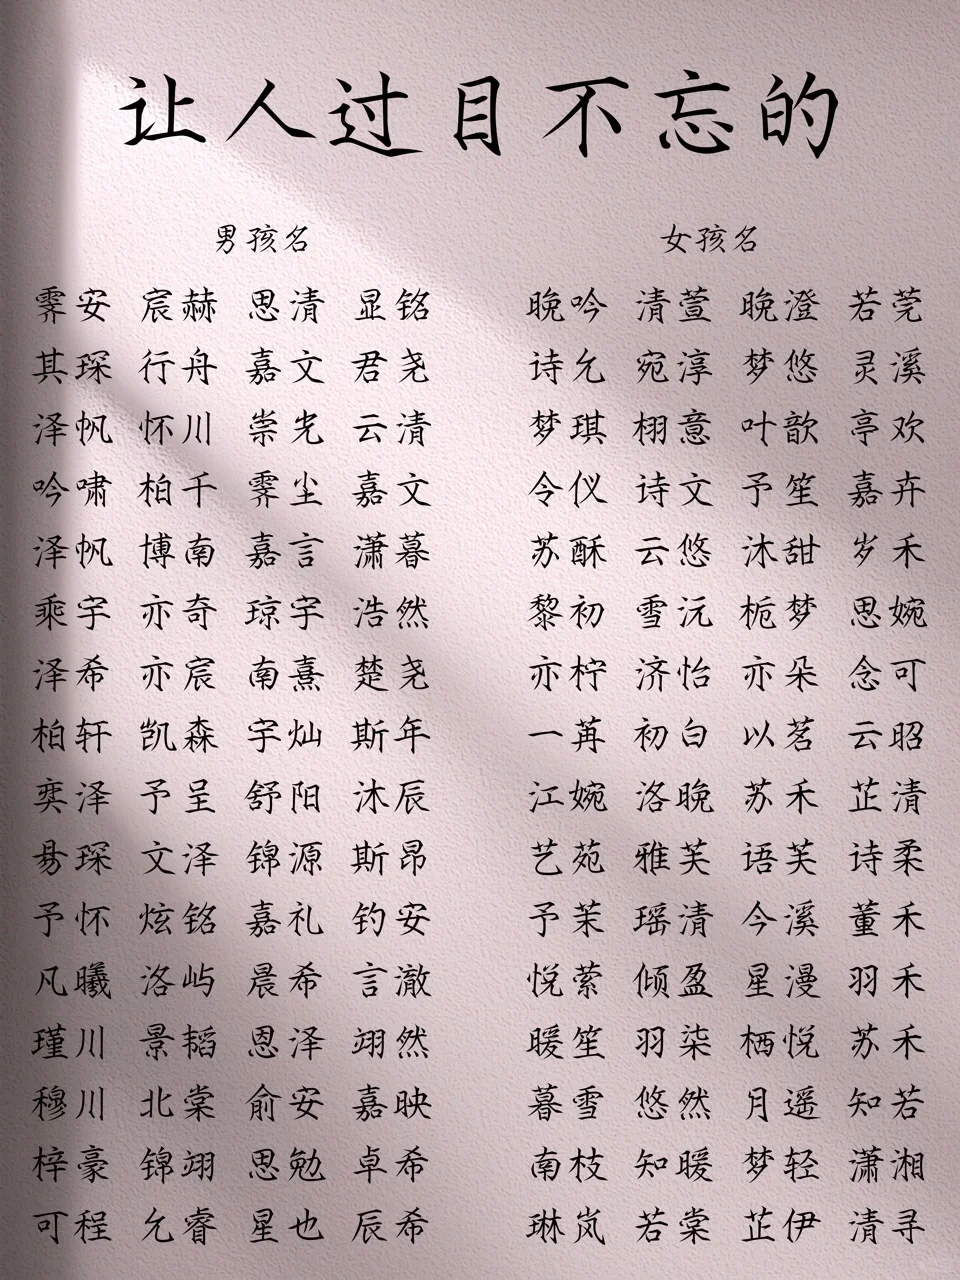 让人过目不忘的
男孩名 女孩名
霁安 宸赫 思清 显铭 晚吟 清萱 晚澄 若莞
其琛 行舟 嘉文 君尧 诗允 宛淳 梦悠 灵溪
泽帆 怀川 崇光 云清 梦琪 栩意 叶歆 亭欢
吟啸 柏千 霁尘 嘉文 令仪 诗文 予笙 嘉卉
泽帆 博南 嘉言 潇暮 苏酥 云悠 沐甜 岁禾
乘宇 亦奇 琼宇 浩然 黎初 雪沅 栀梦 思婉
泽希 亦宸 南熹 楚尧 亦柠 济怡 亦朵 念可
柏轩 凯森 宇灿 斯年 一苒 初白 以茗 云昭
奕泽 予呈 舒阳 沐辰 江婉 洛晚 苏禾 芷清
易琛 文泽 锦源 斯昂 艺苑 雅芙 语芙 诗柔
予怀 炫铭 嘉礼 钧安 予茉 瑶清 今溪 董禾
凡曦 洛屿 晨希 言澈 悦萦 倾盈 星漫 羽禾
瑾川 景韬 恩泽 翊然 暖笙 羽柒 栖悦 苏禾
穆川 北棠 俞安 嘉映 暮雪 悠然 月遥 知若
梓豪 锦翊 思勉 卓希 南枝 知暖 梦轻 潇湘
可程 允睿 星也 辰希 琳岚 若棠 芷伊 清寻